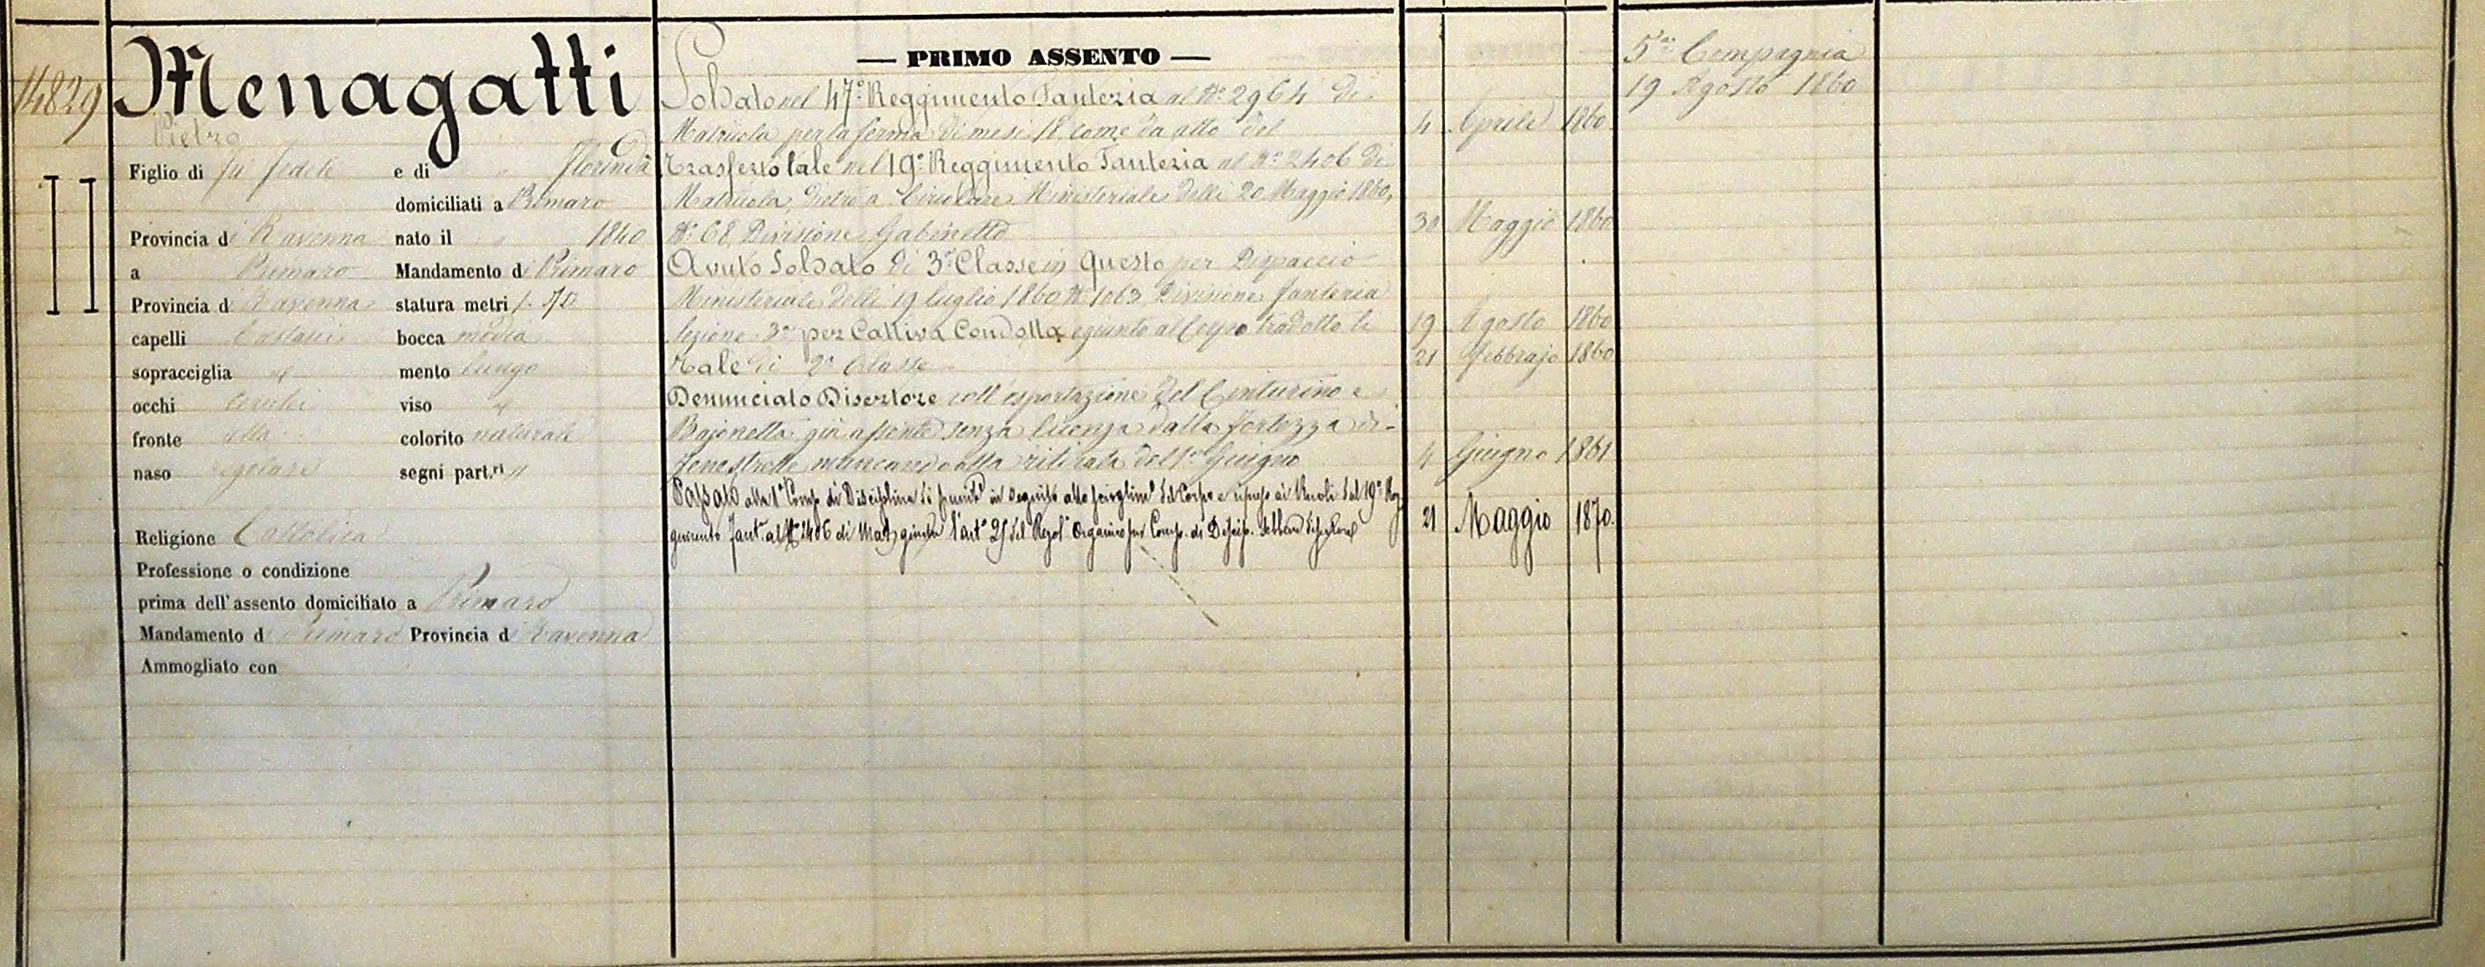 14829
Menagatti
Pietro
Figlio di fu Fedele e di " Florinda
domiciliati a Primaro
Provincia di Ravenna nato il " 1840
a Primaro Mandamento di Primaro
Provincia di Ravenna statura metri 1.
capelli Castani bocca media
sopracciglia id mento lungo
occhi cerulei viso id
fronte alta colorito naturale
naso regolare segni part.ri "
Religione Cattolica
Professione o condizione
prima dell'assento domiciliato a Primaro
Mandamento di Primaro Provincia di Ravenna
Ammogliato con
— PRIMO ASSENTO —
Soldato nel 47° Reggimento Fanteria al N° 2964 di
Matricola per la ferma di mesi 18 come da atto del 4 Aprile 1860
Trasferto tale nel 19° Reggimento Fanteria al N° 2406 di
Matricola, dietro a Circolare Ministeriale delli 20 Maggio 1860,
N° 68, Divisione Gabinetto 30 Maggio 1860
Avuto Soldato di 3a Classe in questo per Dispaccio
Ministeriale delli 19 luglio 1860 N° 1063 Divisione fanteria
sezione 3a per Cattiva Condotta e giunto al Corpo tradotto li 19 Agosto 1860
Tale di 2a Classe 21 Febbrajo 1860
Denunciato Disertore coll'esportazione del Centurino e
Bajonetta già assente senza licenza dalla fortezza di
Fenestrelle mancando alla ritirata del 1° Giugno 4 Giugno 1861
Passato alla 1a Comp. di Disciplina di in seguito allo scioglim° del Corpo e ai Ruoli del 19° Reg
gimento Fant. al N° 2406 di Mat. giusta l'art° 25 del Regol° Organico per Comp. di Discip. 21 Maggio 1870.
5a Compagnia
19 Agosto 1860